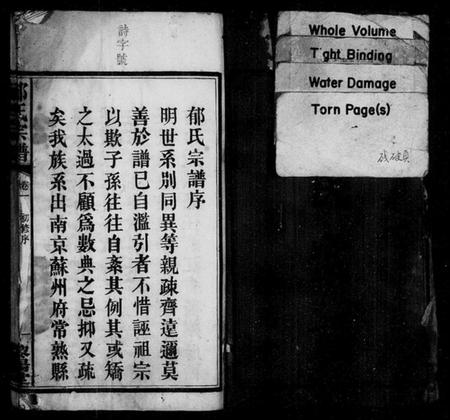 詩字號
郁氏宗譜序
明世系別同異等親疎齊遠邇莫
善於譜已自濫引者不惜誣祖宗
以欺子孫往往自紊其例其或矯
之太過不顧爲數典之忌抑又疏
矣我族系出南京蘇州府常熟縣
氏宗譜
卷一
初修序
一
Whole Volume
Tight Binding
Water Damage
Torn Page(s)
残破頁